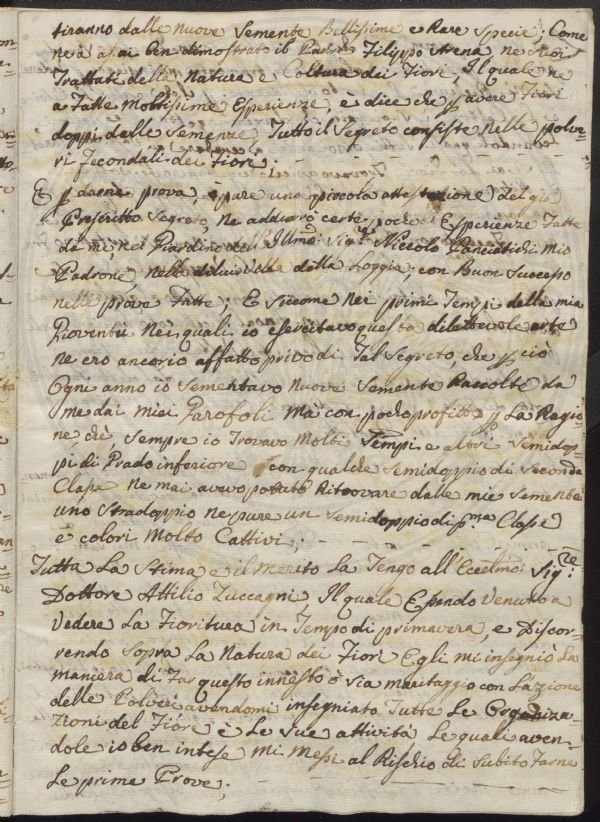 tiranno dalle nuove Semente Bellissime e Rare Specie; Come
ne à assai ben dimostrato il Padre Filippo Arena ne suoi
Trattati della Natura e Coltura dei Fiori, Il quale ne
a Fatte Moltissime Esperienze, è dice che p avere Fiori
doppi dalle Semenze, Tutto il Segreto consiste Nelle polve-
ri Fecondali dei Fiori;
E p darne prova, ò pure una piccola attestazione del già
Prescritto Segreto, Ne addurrò certe poche Esperienze Fatte
da me nel Giardino dell' Illmo: Sigre Niccolò Panciatichi Mio
Padrone, nella di lui Villa della Loggia; con Buon Successo
nelle prove Fatte; E siccome Nei primi Tempi della mia
Gioventù Nei quali io esercitavo questa dilettevole arte
ne ero ancorio affatto privo di Tal Segreto, che p ciò
Ogni anno io Sementavo Nuove Semente Raccolte da
me dai miei Garofoli Ma con poco profitto p La Ragio-
ne, chè, Sempre io Trovavo Molti Sempi e altri Semidop-
pi di Grado inferiore con qualche Semidoppio di Seconda
Classe Ne mai avevo potuto Ritrovare dalle mie Sementi
uno Stradoppio ne pure un Semidoppio di pma Classe
e colori Molto Cattivi;
Tutta La Stima e il merito La Tengo all' Eccelmo: Sigre:
Dottore Attilio Zuccagni, Il quale Essendo Venuto a
Vedere La Fioritura in Tempo di primavera, e Discor-
rendo Sopra La Natura dei Fiori Egli mi insegniò La
maniera di Far questo innesto ò Sia maritaggio con Lazione
delle Polveri avendomi insegniato Tutte Le Organiza-
Zioni del Fiore è Le Sue attività Le quali aven-
dole io ben intese Mi Messi al Rischio di Subito Farne
Le prime Prove;